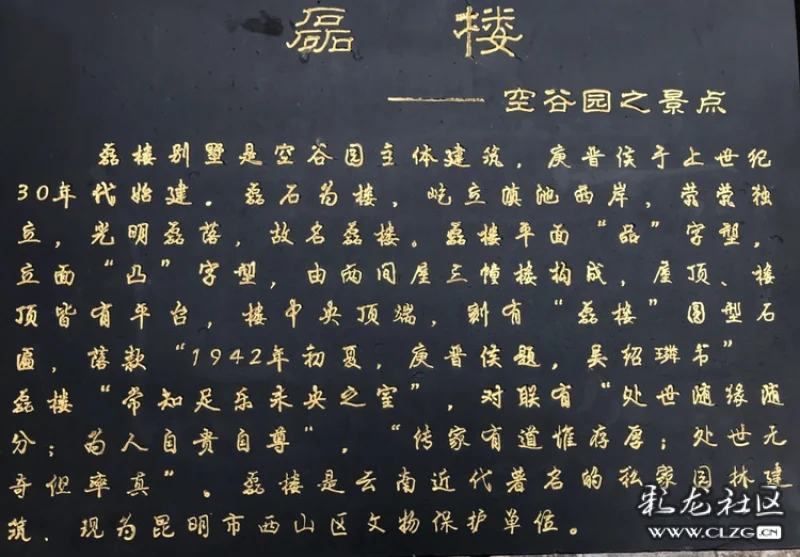 磊 楼
——空谷园之景点
磊楼别墅是空谷园主体建筑，庾晋侯于上世纪
30年代始建。磊石为楼，屹立滇池西岸，茕茕独
立，光明磊落，故名磊楼。磊楼平面“品”字型，
立面“凸”字型，由两间屋三幢楼构成，屋顶、楼
顶皆有平台，楼中央顶端，刻有“磊楼”圆型石
匾，落款“1942年初夏，庾晋侯题，吴绍璘书”
磊楼“常知足乐未央之室”，对联有“处世随缘随
分；为人自贵自尊”，“传家有道惟存厚；处世无
奇但率真”。磊楼是云南近代著名的私家园林建
筑．现为昆明市西山区文物保护单位。
彩龙社区
WWW.CLZG.CN